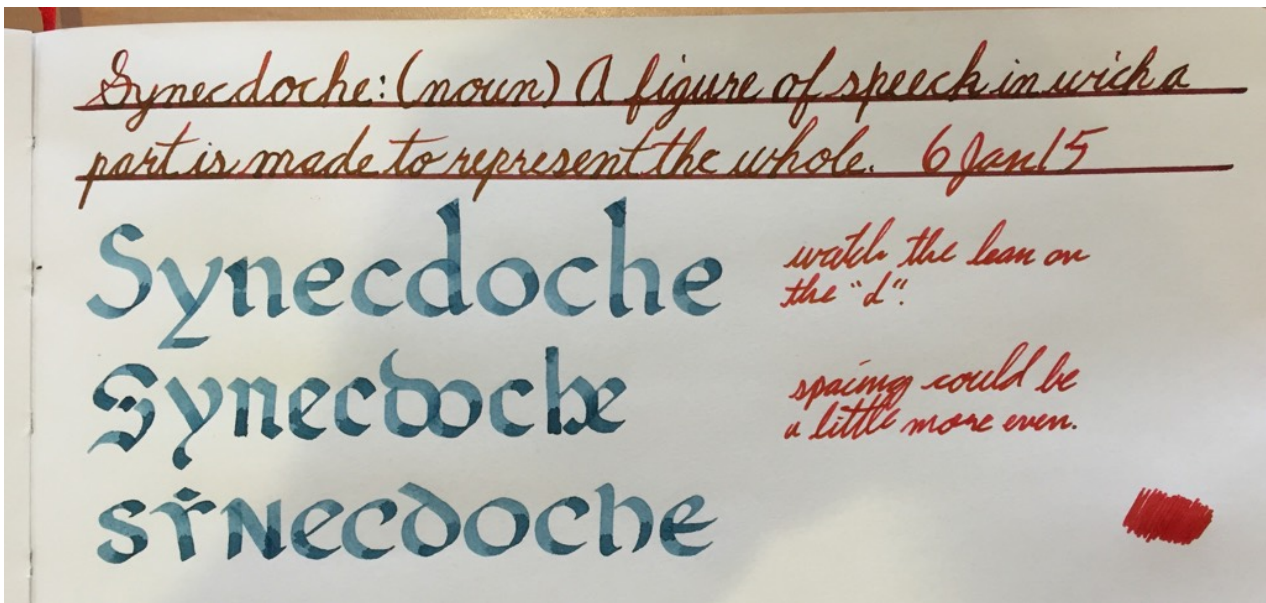 Synecdoche: (noun) A figure of speech in wich a
part is made to represent the whole. 6 Jan 15
Synecdoche
watch the lean on
the "d".
Synecdoche
spacing could be
a little more even.
SYNecdoche